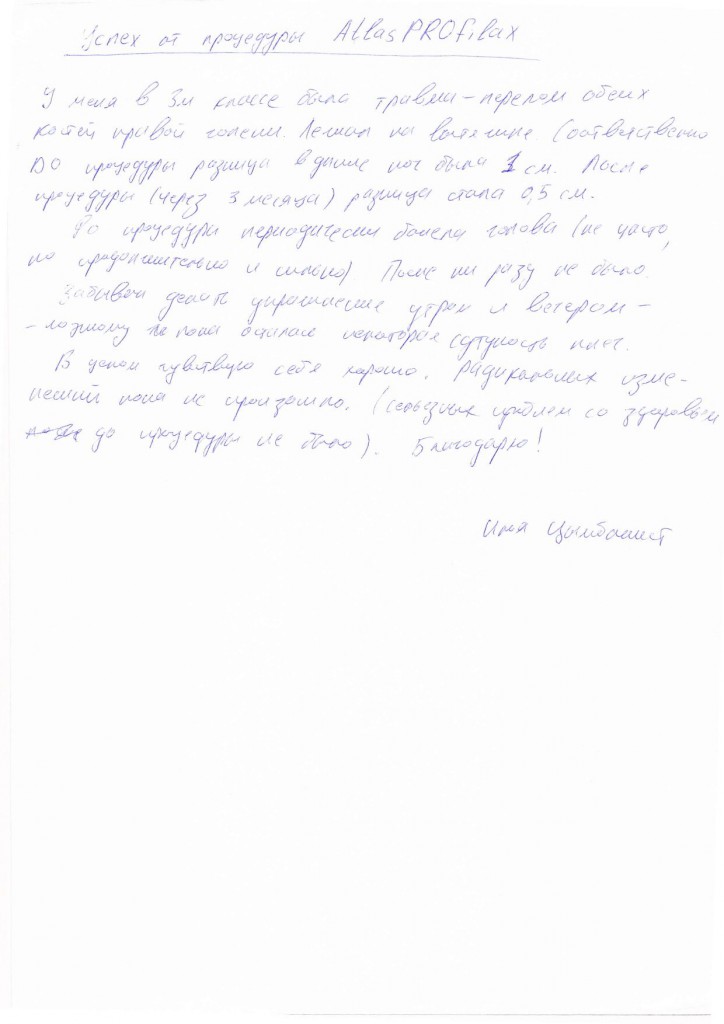 Успех от процедуры AtlasPROfilax
У меня в 3м классе была травма – перелом обеих
костей правой голени. Лежал на вытяжке. Соответственно
До процедуры разница в длине ног была 1 см. После
процедуры (через 3 месяца) разница стала 0,5 см.
До процедуры периодически болела голова (не часто,
но продолжительно и сильно) После ни разу не было.
Забываю делать упражнение утром и вечером –
– поэтому пока осталась некоторая сутулость плеч.
В целом чувствую себя хорошо. Радикальных изме-
нений пока не произошло. (серьезных проблем со здоровьем
до процедуры не было). Благодарю!
Илья